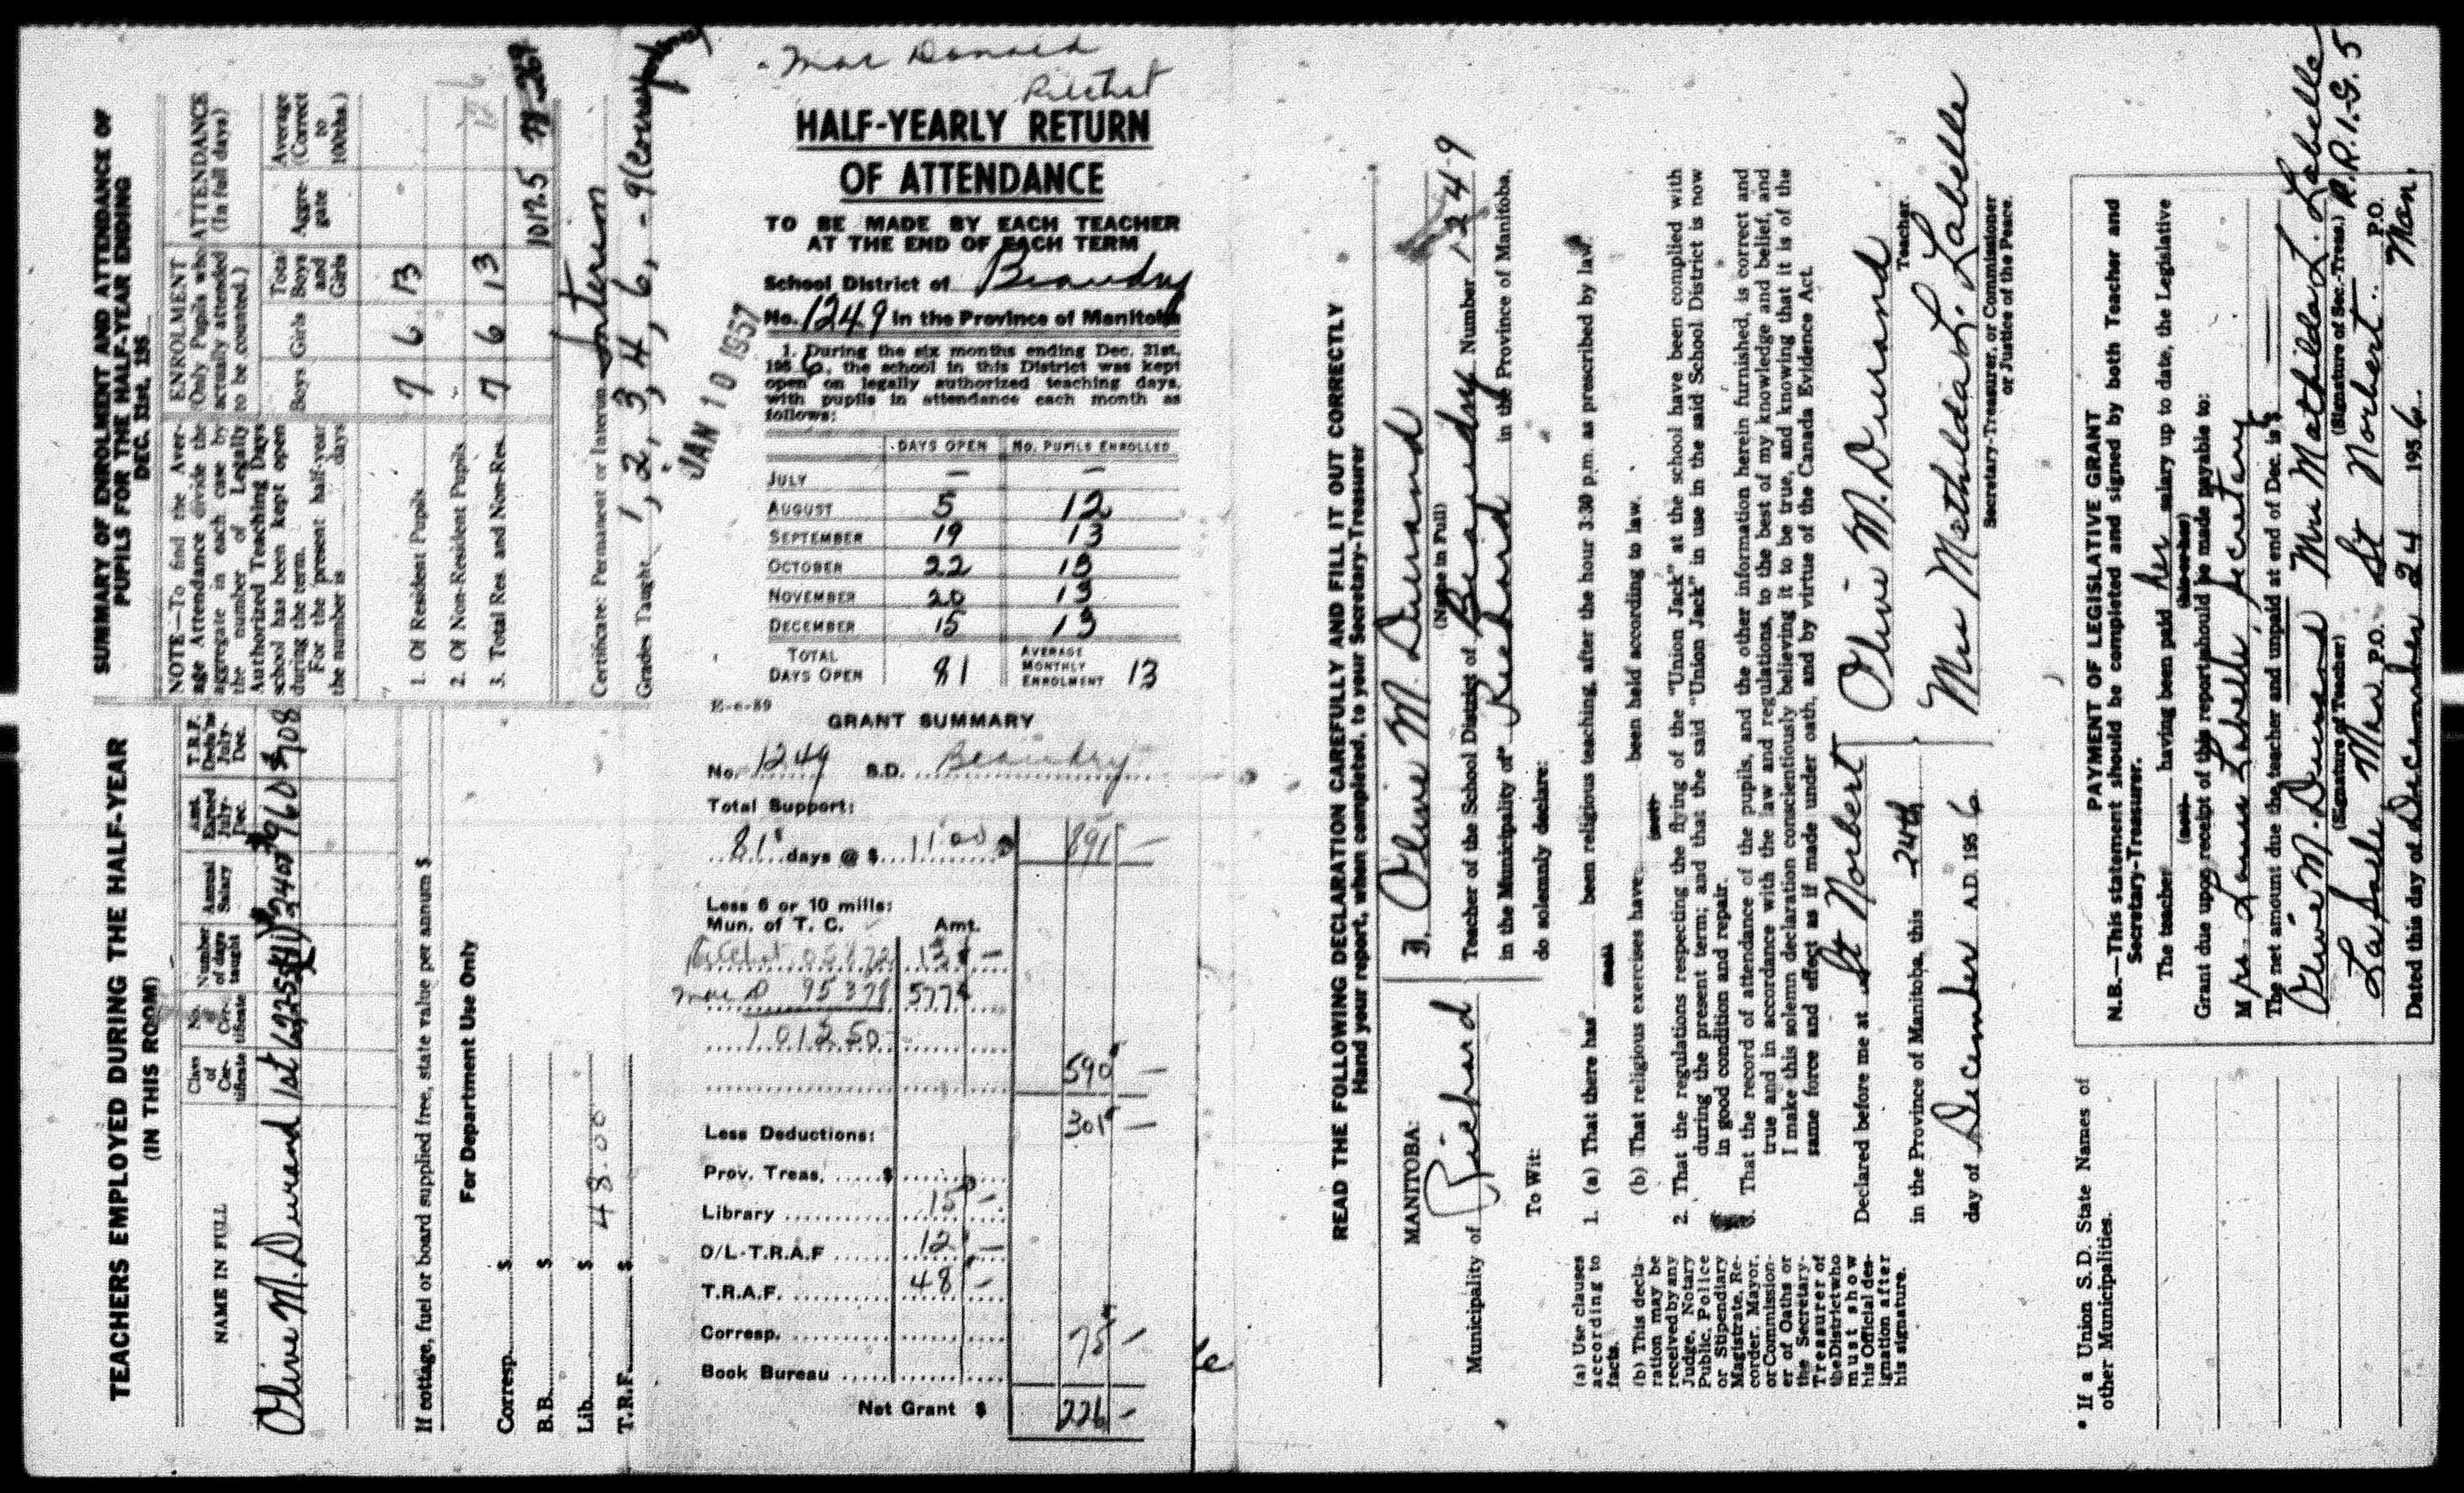 TEACHERS EMPLOYED DURING THE HALF-YEAR
(IN THIS ROOM)
NAME IN FULL
Class of Cer- tificate
No. Cer- tificate
Number of days taught
Annual Salary
Amt. Earned July- Dec.
T.R.F. Dedn's July- Dec.
Olive M. Durand 1st
If cottage, fuel or board supplied free, state value per annum $
For Department Use Only
Corresp. $
B.B. $
Lib. $ 48.00
T.R.F. $
SUMMARY OF ENROLMENT AND ATTENDANCE OF
PUPILS FOR THE HALF-YEAR ENDING
DEC. 31st, 195
NOTE—To find the Aver-
age Attendance divide the
aggregate in each case by
the number of Legally
Authorized Teaching Days
school has been kept open
during the term.
For the present half-year
the number is days
ENROLMENT
(Only Pupils who
actually attended
to be counted.)
ATTENDANCE
(In full days)
Boys Girls Total Boys and Girls
Aggre- gate
Average (Correct to 100ths.)
1. Of Resident Pupils 7 6 13
2. Of Non-Resident Pupils
3. Total Res. and Non-Res. 7 6 13
1012.5
Certificate: Permanent or Interim Interim
Grades Taught 1, 2, 3, 4, 6, - 9
JAN 10 1957
Mac Donald
Ritchot
HALF-YEARLY RETURN
OF ATTENDANCE
TO BE MADE BY EACH TEACHER
AT THE END OF EACH TERM
School District of Beaudry
No. 1249 in the Province of Manitoba
1. During the six months ending Dec. 31st,
195 6, the school in this District was kept
open on legally authorized teaching days,
with pupils in attendance each month as
follows:
DAYS OPEN NO. PUPILS ENROLLED
JULY — —
AUGUST 5 12
SEPTEMBER 19 13
OCTOBER 22 13
NOVEMBER 20 13
DECEMBER 15 13
TOTAL DAYS OPEN 81 AVERAGE MONTHLY ENROLMENT 13
E-6-59
GRANT SUMMARY
No. 1249 S.D. Beaudry
Total Support:
81 days @ $ 11.00 891 —
Less 6 or 10 mills:
Mun. of T. C. Amt.
Ritchot 13 —
Mac D 577
590 —
Less Deductions: 301 —
Prov. Treas. $
Library 15 —
D/L-T.R.A.F 12 —
T.R.A.F. 48 —
Corresp. 75 —
Book Bureau
Net Grant $ 226 —
READ THE FOLLOWING DECLARATION CAREFULLY AND FILL IT OUT CORRECTLY
Hand your report, when completed, to your Secretary-Treasurer
MANITOBA:
Municipality of Richard
To Wit:
3. Olive M. Durand
(Name in Full)
Teacher of the School District of Beaudry Number 1249
in the Municipality of Richard in the Province of Manitoba,
do solemnly declare:
1. (a) That there has been religious teaching, after the hour 3:30 p.m. as prescribed by law.
(b) That religious exercises have been held according to law.
2. That the regulations respecting the flying of the "Union Jack" at the school have been complied with
during the present term; and that the said "Union Jack" in use in the said School District is now
in good condition and repair.
3. That the record of attendance of the pupils, and the other information herein furnished, is correct and
true and in accordance with the law and regulations, to the best of my knowledge and belief, and
I make this solemn declaration conscientiously believing it to be true, and knowing that it is of the
same force and effect as if made under oath, and by virtue of the Canada Evidence Act.
Declared before me at St Norbert
in the Province of Manitoba, this 24th
day of December A.D. 195 6
Olive M. Durand
Teacher.
Mrs Mathilda L. Labelle
Secretary-Treasurer, or Commissioner
or Justice of the Peace.
(a) Use clauses
according to
facts.
(b) This decla-
ration may be
received by any
Judge, Notary
Public, Police
or Stipendiary
Magistrate, Re-
corder, Mayor,
or Commission-
er of Oaths or
the Secretary-
Treasurer of
the District who
must show
his Official des-
ignation after
his signature.
PAYMENT OF LEGISLATIVE GRANT
N.B.—This statement should be completed and signed by both Teacher and
Secretary-Treasurer.
The teacher having been paid her salary up to date, the Legislative
Grant due upon receipt of this report should be made payable to:
Mrs. Labelle, Secretary
The net amount due the teacher and unpaid at end of Dec. is $
Olive M. Durand Mrs Mathilda L. Labelle
(Signature of Teacher) (Signature of Sec.-Treas.) R.R.1.G.5
La Salle, Man. P.O. St Norbert P.O.
Dated this day of December 24 195 6 Man.
* If a Union S.D. State Names of
other Municipalities.